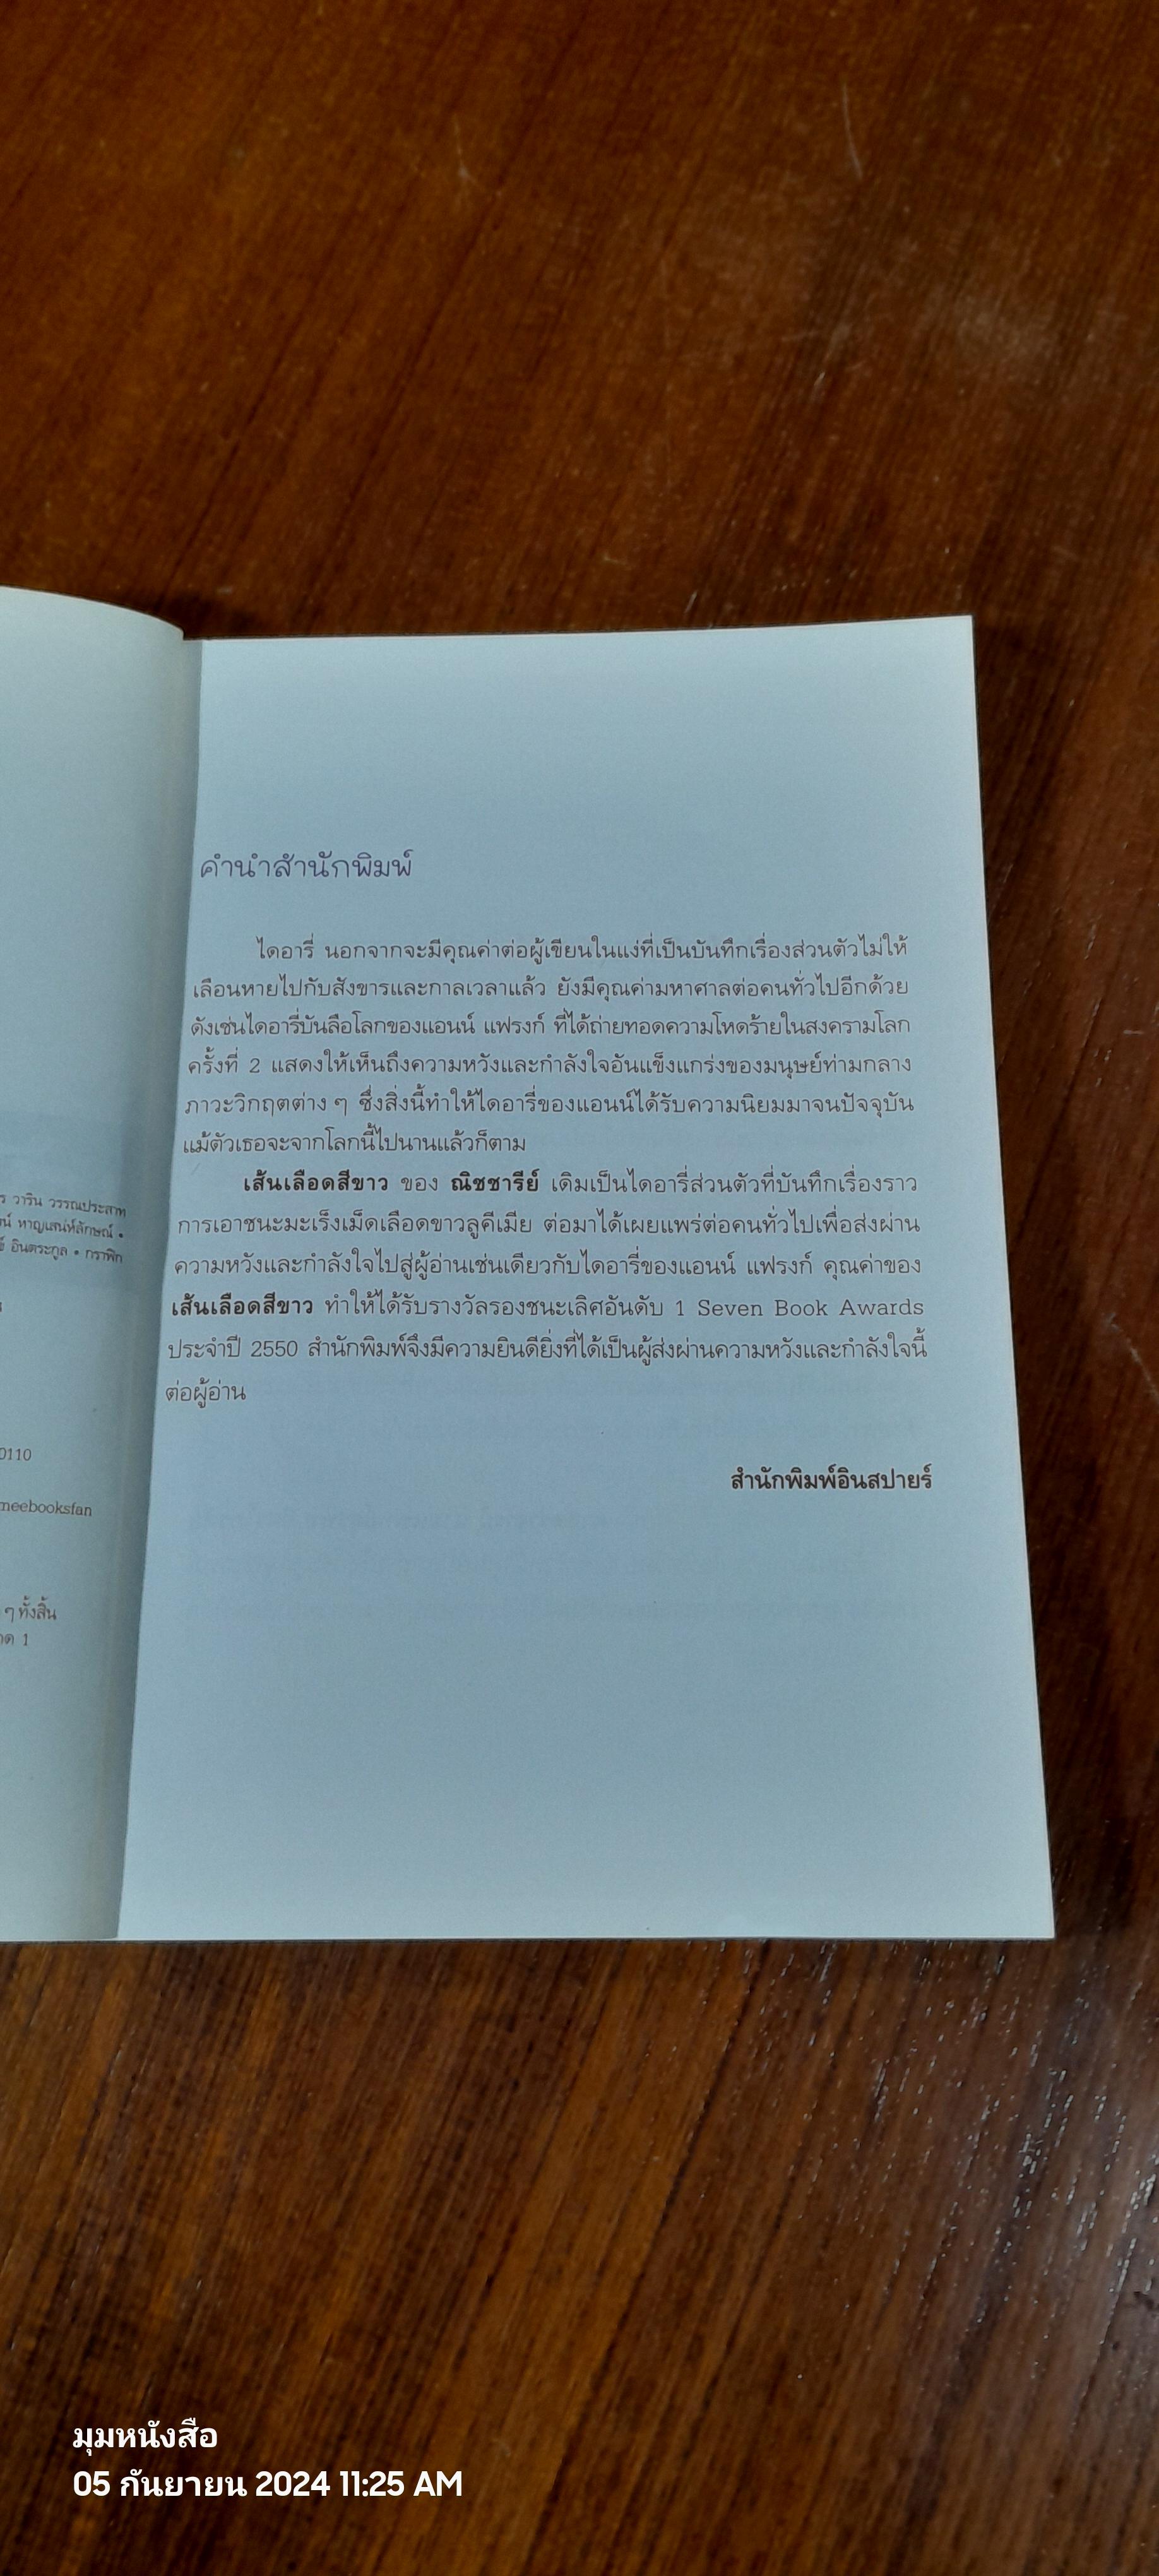 ร วาริน วรรณประสาท
น์ หาญเสน่ห์ลักษณ์ •
อินตระกูล • กราฟิก
0110
meebooksfan
ๆ ทั้งสิ้น
1
คำนำสำนักพิมพ์
ไดอารี่ นอกจากจะมีคุณค่าต่อผู้เขียนในแง่ที่เป็นบันทึกเรื่องส่วนตัวไม่ให้
เลือนหายไปกับสังขารและกาลเวลาแล้ว ยังมีคุณค่ามหาศาลต่อคนทั่วไปอีกด้วย
ดังเช่นไดอารี่บันลือโลกของแอนน์ แฟรงก์ ที่ได้ถ่ายทอดความโหดร้ายในสงครามโลก
ครั้งที่ 2 แสดงให้เห็นถึงความหวังและกำลังใจอันแข็งแกร่งของมนุษย์ท่ามกลาง
ภาวะวิกฤตต่าง ๆ ซึ่งสิ่งนี้ทำให้ไดอารี่ของแอนน์ได้รับความนิยมมาจนปัจจุบัน
แม้ตัวเธอจะจากโลกนี้ไปนานแล้วก็ตาม
เส้นเลือดสีขาว ของ ณิชชารีย์ เดิมเป็นไดอารี่ส่วนตัวที่บันทึกเรื่องราว
การเอาชนะมะเร็งเม็ดเลือดขาวลูคีเมีย ต่อมาได้เผยแพร่ต่อคนทั่วไปเพื่อส่งผ่าน
ความหวังและกำลังใจไปสู่ผู้อ่านเช่นเดียวกับไดอารี่ของแอนน์ แฟรงก์ คุณค่าของ
เส้นเลือดสีขาว ทำให้ได้รับรางวัลรองชนะเลิศอันดับ 1 Seven Book Awards
ประจำปี 2550 สำนักพิมพ์จึงมีความยินดียิ่งที่ได้เป็นผู้ส่งผ่านความหวังและกำลังใจนี้
ต่อผู้อ่าน
สำนักพิมพ์อินสปายร์
มุมหนังสือ
05 กันยายน 2024 11:25 AM